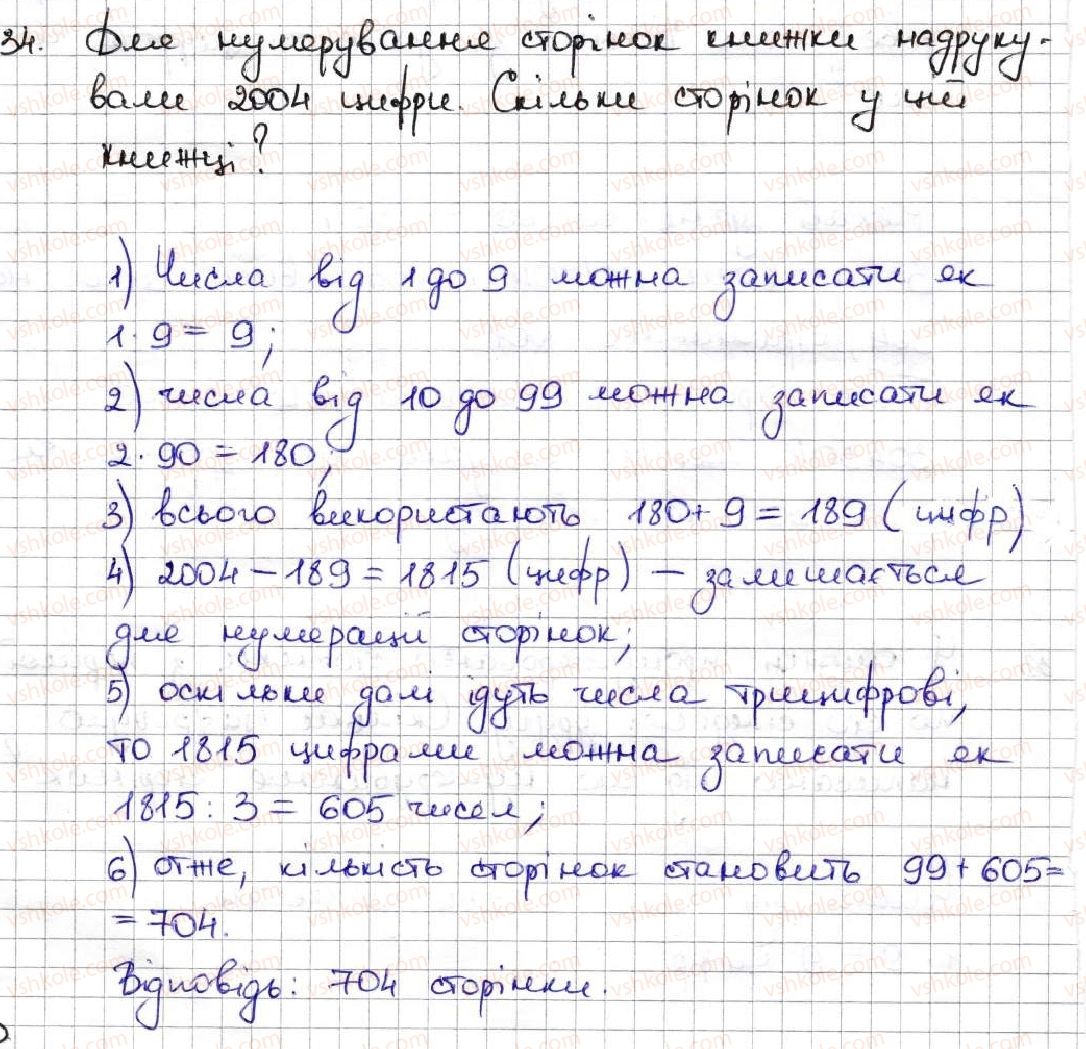 34. Для нумерування сторінок книжки надруку-
вали 2004 цифри. Скільки сторінок у цій
книжці?
1) Числа від 1 до 9 можна записати як
1·9 = 9;
2) числа від 10 до 99 можна записати як
2·90 = 180;
3) всього використають 180+9 = 189 (цифр)
4) 2004 – 189 = 1815 (цифр) – залишається
для нумерації сторінок;
5) оскільки далі ідуть числа трицифрові,
то 1815 цифрами можна записати як
1815 : 3 = 605 чисел;
6) отже, кількість сторінок становить 99 + 605 =
= 704.
Відповідь: 704 сторінки.